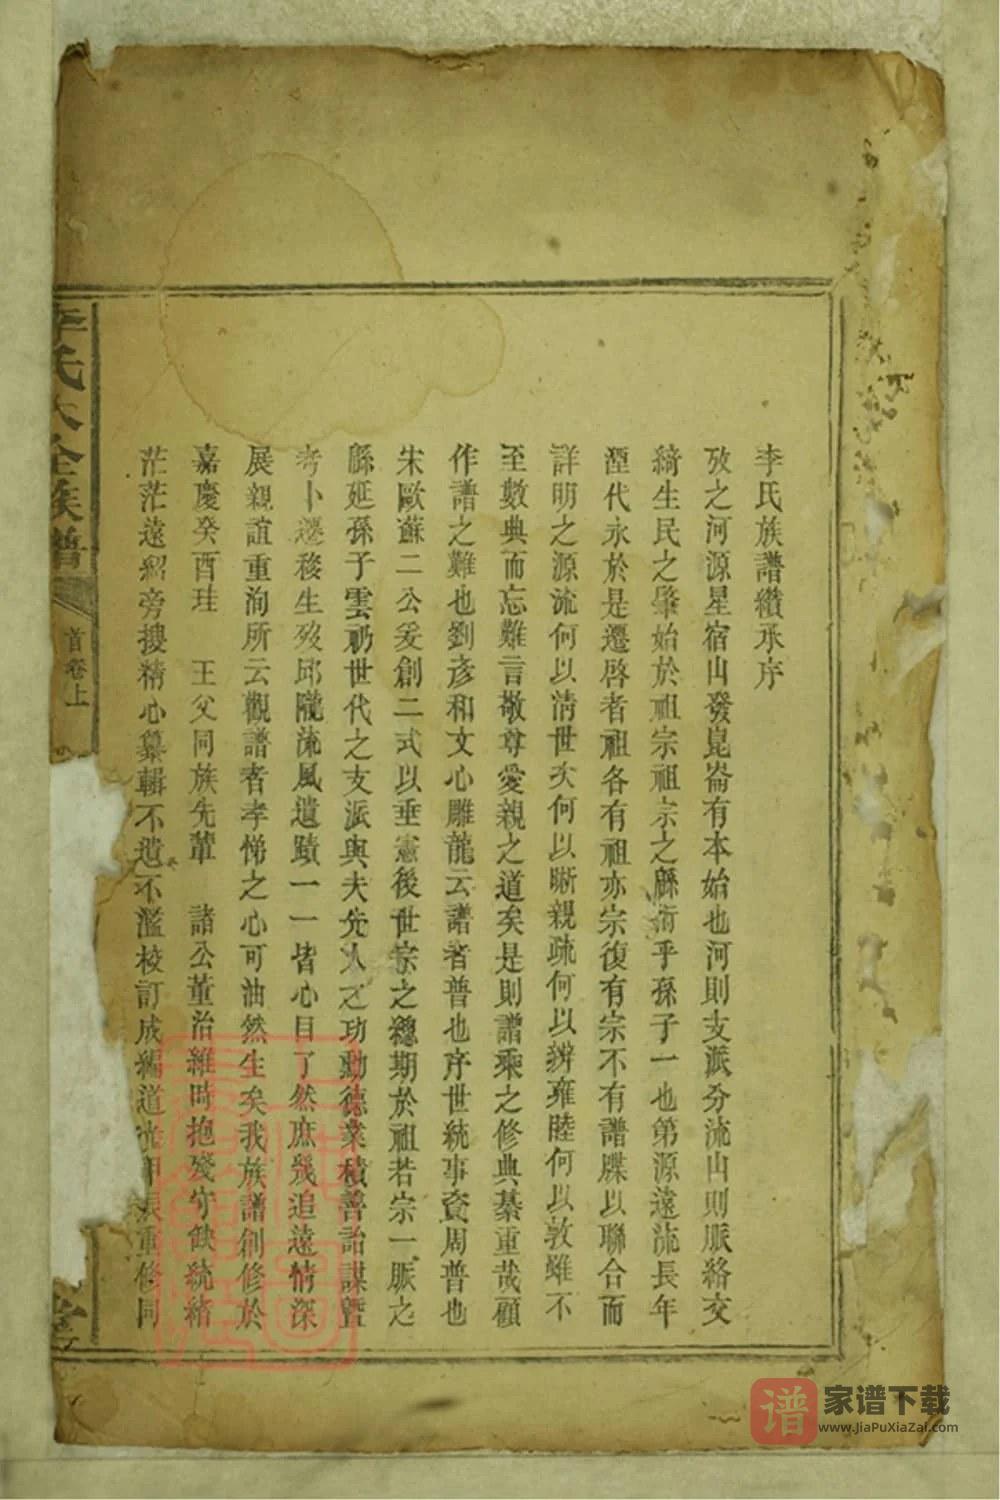 李氏族譜纘承序
攷之河源星宿山發崑崙有本始也河則支派分流山則脈絡交
綺生民之肇始於祖宗祖宗之緜衍乎孫子一也第源遠流長年
湮代永於是遷啓者祖各有祖亦宗復有宗不有譜牒以聯合而
詳明之源流何以清世次何以晰親疏何以辨雍睦何以敦雖不
至數典而忘難言敬尊愛親之道矣是則譜乘之修典綦重哉顧
作譜之難也劉彥和文心雕龍云譜者普也序世統事資周普也
朱歐蘇二公爰創二式以垂憲後世宗之總期於祖若宗一脈之
緜延孫子雲礽世代之支派與夫先人之功勳德業積善詒謀曁
考卜遷移生歿邱隴流風遺蹟一一皆心目了然庶幾追遠情深
展親誼重洵所云觀譜者孝悌之心可油然生矣我族譜創修於
嘉慶癸酉珪 王父同族先輩 諸公董治維時抱殘守缺統緒
茫茫遠紹旁搜精心纂輯不遺不濫校訂成編道光重修同
李氏大全族譜 首卷上
谱
家谱下载
www.JiaPuXiaZai.com